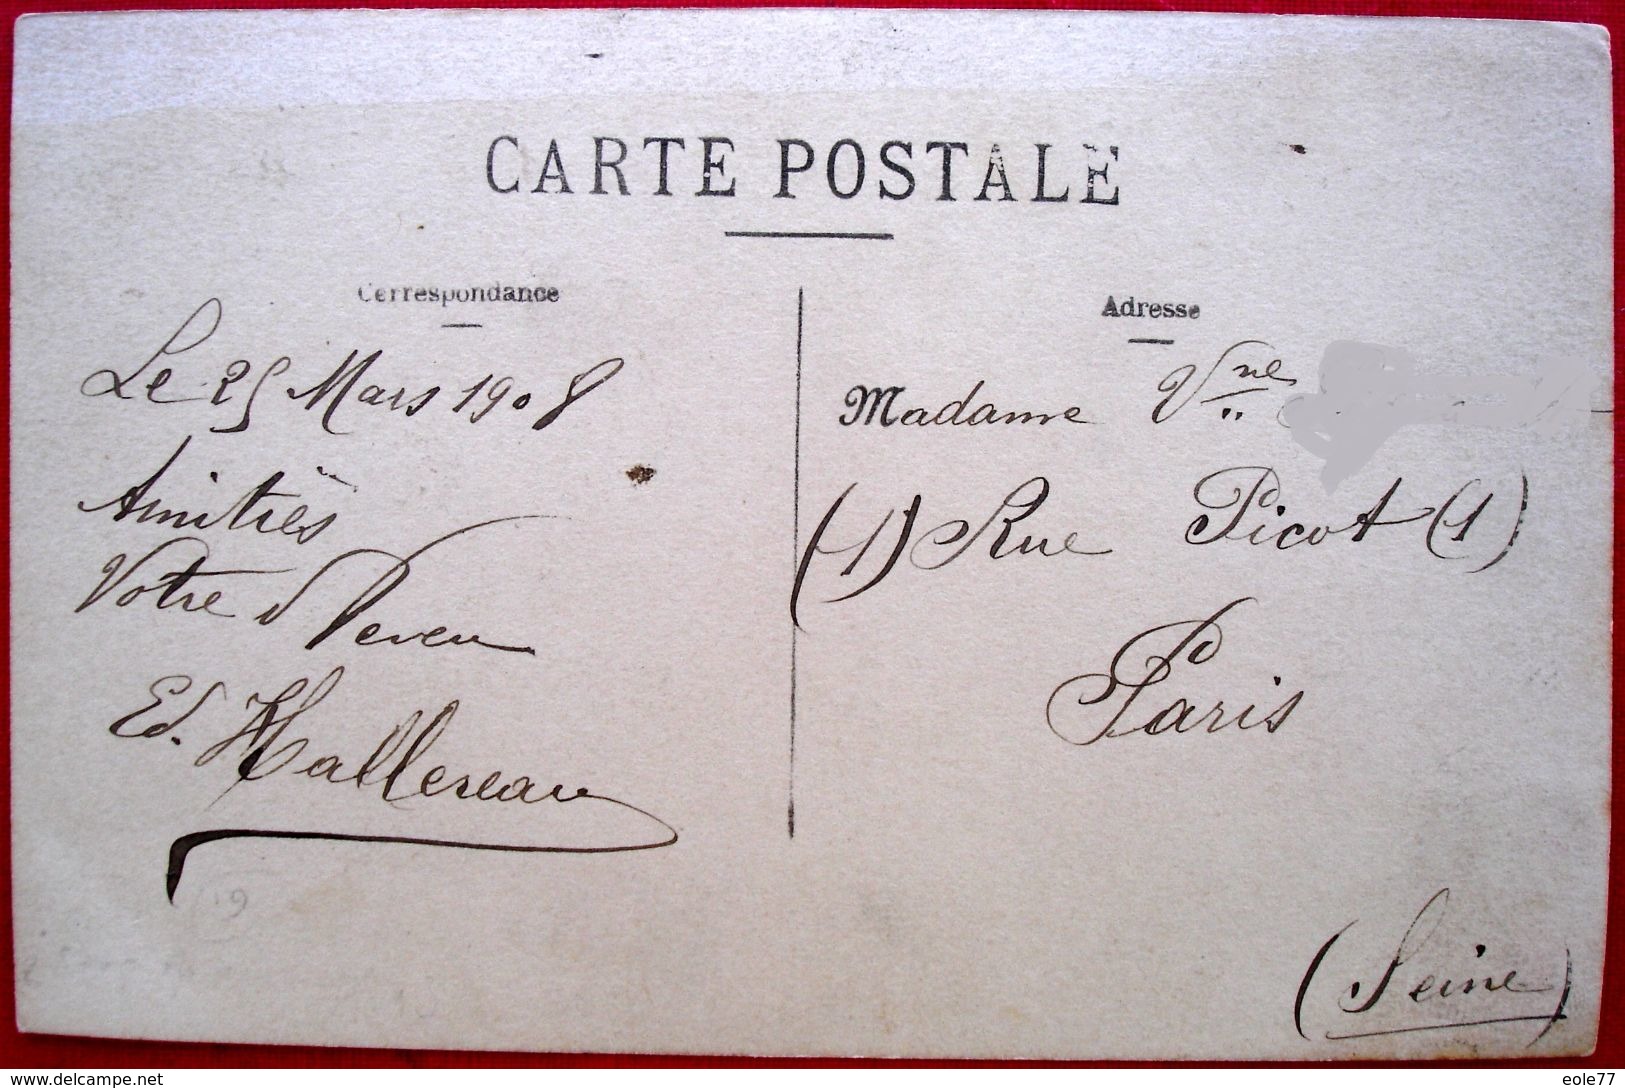 CARTE POSTALE
Correspondance
Le 25 Mars 1908
Amitiés
Votre Neveu
Ed. Hallereau
Adresse
Madame Vve
(1) Rue Picot (1)
Paris
(Seine)
delcampe.net
eole77